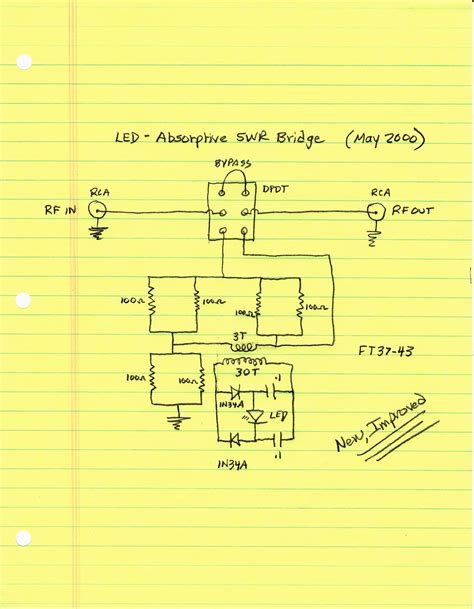 LED - Absorptive SWR Bridge (May 2000)
BYPASS
DPDT
RCA
RCA
RF IN
RF OUT
100Ω
100Ω
100Ω
100Ω
3T
FT37-43
30T
100Ω
100Ω
.1
1N34A
LED
.1
1N34A
New, Improved